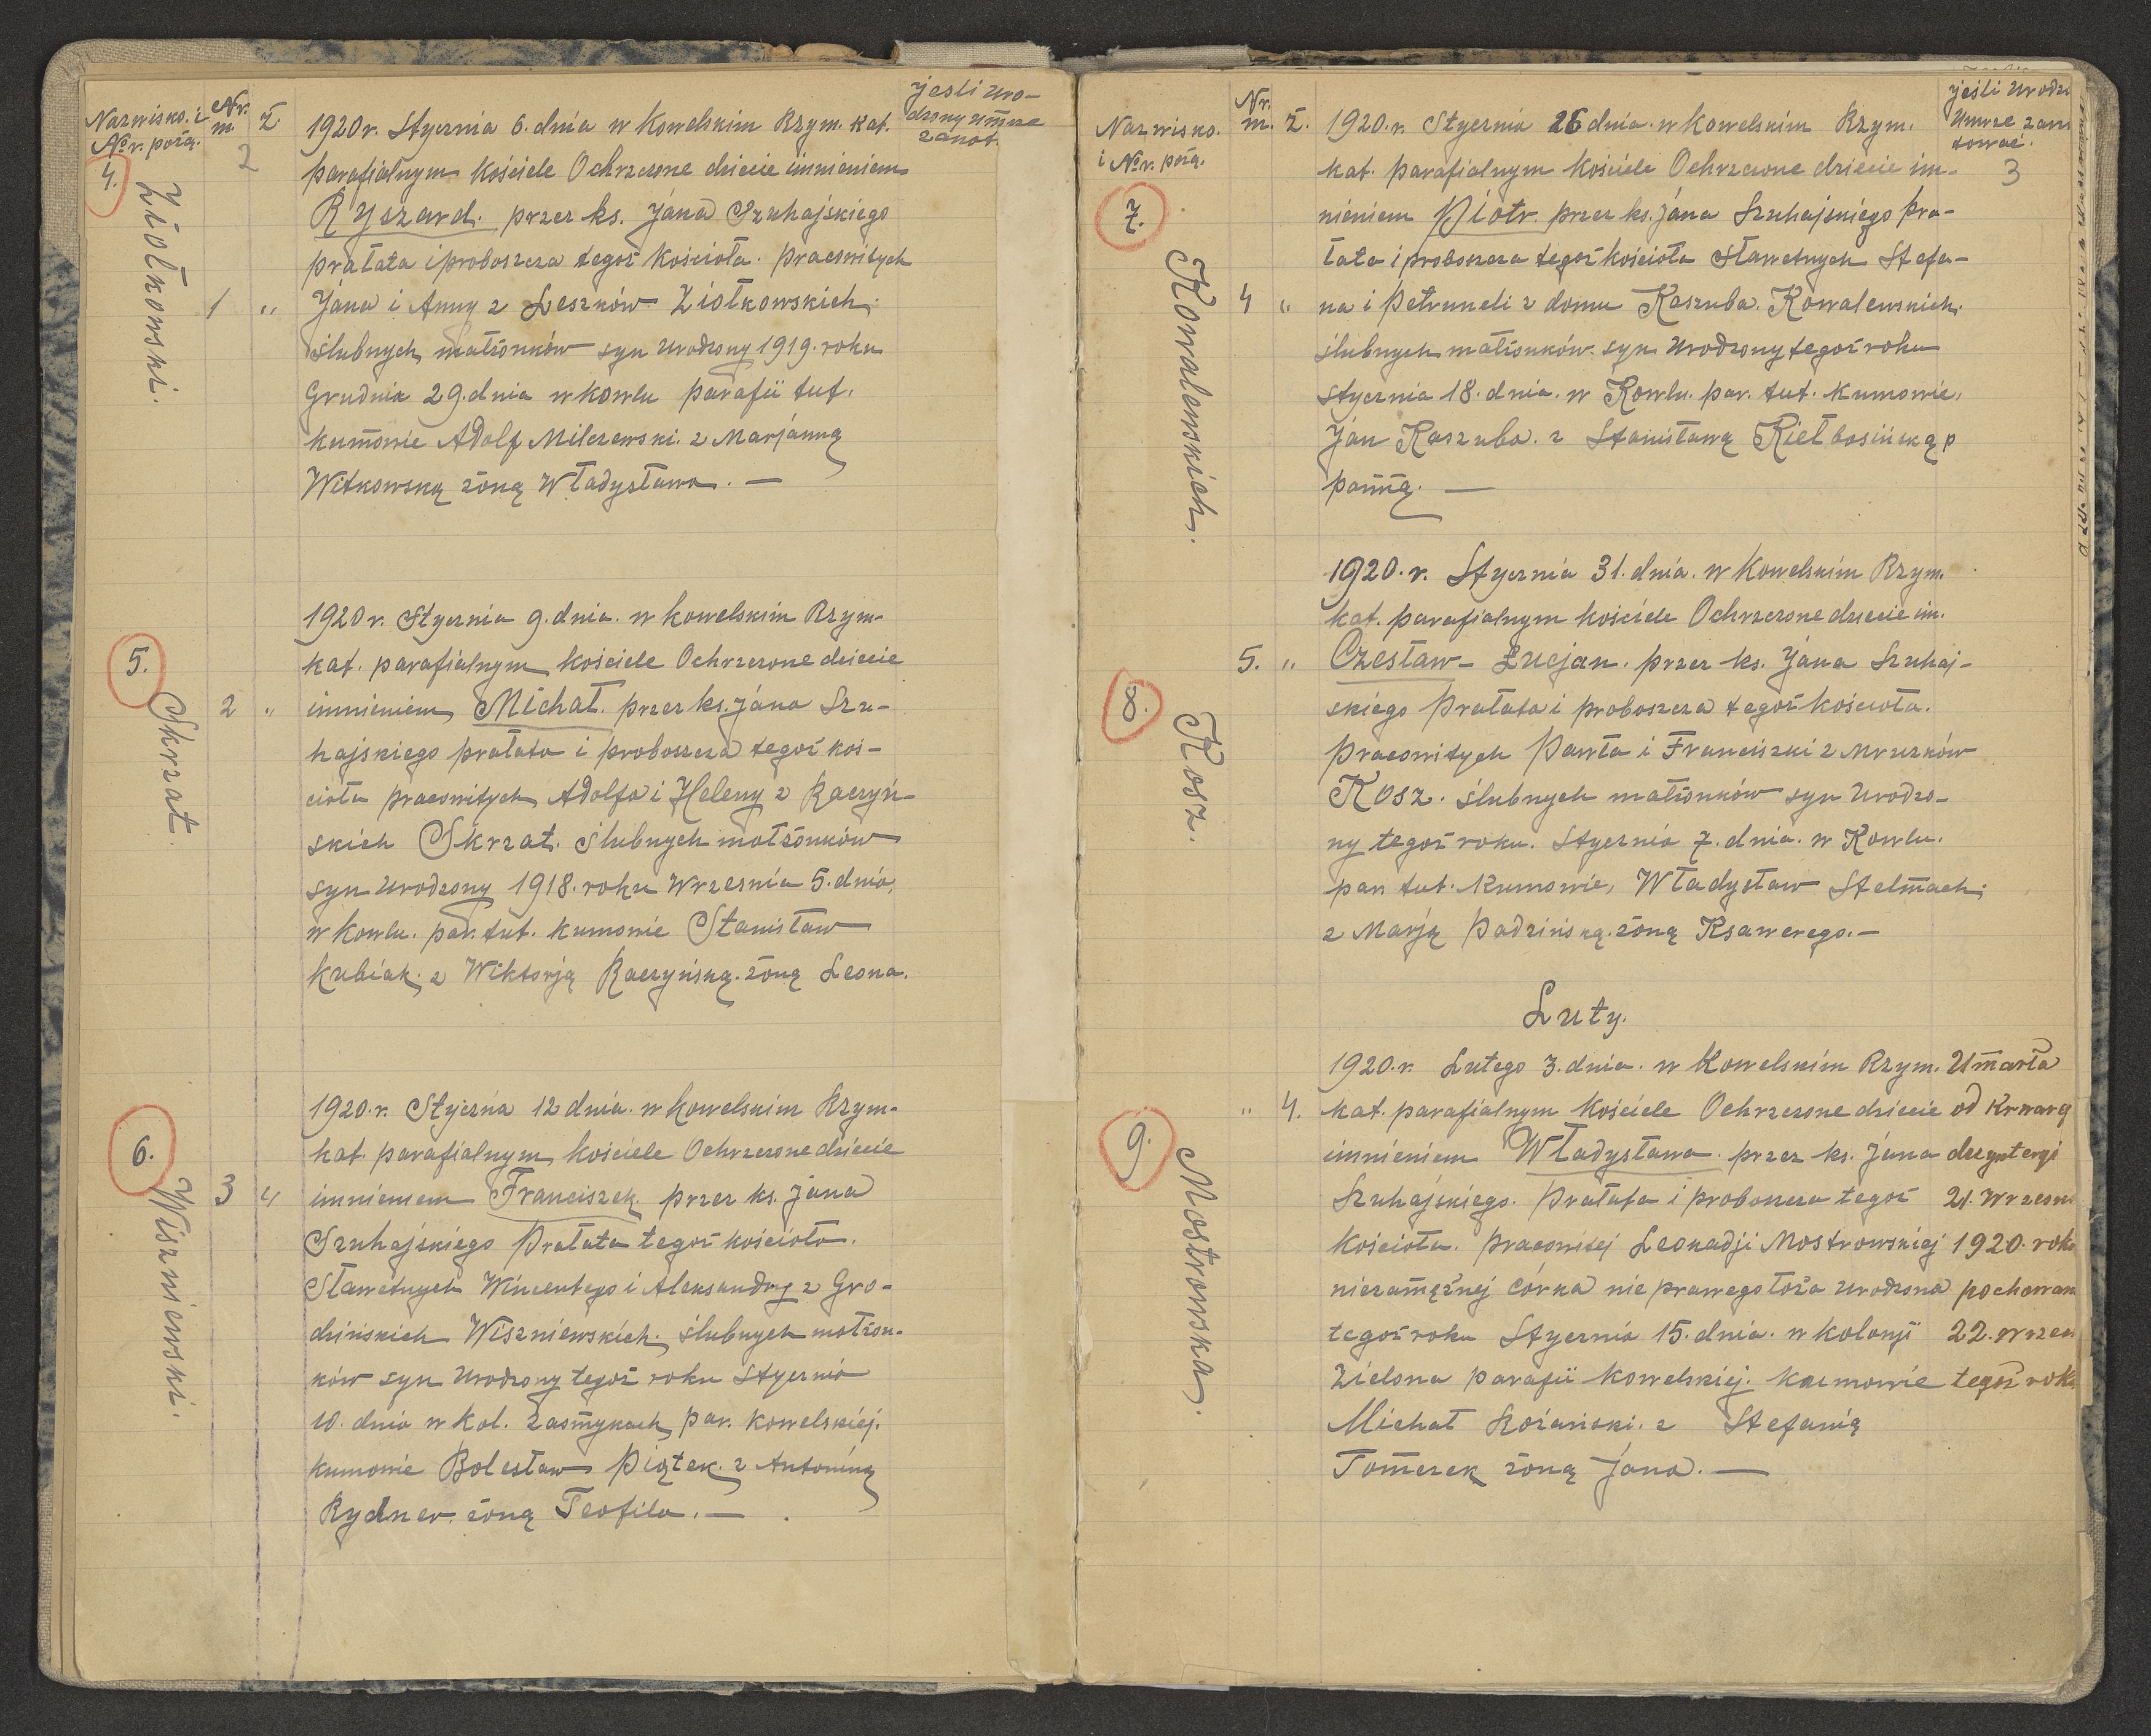 Nazwisko i
Nr. porz.
Nr.
m.
Ż
jeśli uro-
dzony umrze
zanot.
2
4.
Ziółkowski.
1 "
1920 r. Stycznia 6. dnia w Kowelskim Rzym. kat.
parafialnym kościele Ochrzczone dziecie imnieniem
Ryszard. przez ks. Jána Szuhajskiego
prałata i proboszcza tegoż kościoła. pracowitych
Jána i Anny z Leszków Ziołkowskich.
ślubnych małżonków syn urodzony 1919. roku
Grudnia 29. dnia w Kowlu parafii tut.
kumowie Adolf Milczewski. z Marjanną
Witkowską żoną Władysława. —
5.
Skrzat.
2 "
1920 r. Stycznia 9. dnia. w kowelskim Rzym-
kat. parafialnym kościele Ochrzczone dziecie
imnieniem Michał. przez ks. Jána Szu-
hajskiego prałata i proboszcza tegoż koś-
cioła pracowitych Adolfa i Heleny z Raczyń-
skich Skrzat. ślubnych małżonków
syn urodzony 1918. roku Września 5. dnia,
w Kowlu. par. tut. kumowie Stanisław
Kubiak. z Wiktorją Raczyńską. żoną Leona.
6.
Wiszniewski.
3 "
1920. r. Stycznia 12 dnia. w kowelskim Rzym-
kat. parafialnym kościele Ochrzczone dziecie
imnieniem Franciszek przez ks. Jána
Szuhajskiego Prałata tegoż kościoła.
Sławetnych Wincentego i Aleksandry z Gro-
dzińskich Wiszniewskich. ślubnych małżon-
ków syn urodzony tegoż roku Stycznia
10. dnia w kol. Zasmykach par. kowelskiej.
kumowie Bolesław Piątek. z Antoniną
Rydner. żoną Teofila. —
Nazwisko.
i Nr. porz.
Nr.
m.
Ż.
jeśli urodz
umrze zano
tować.
3
7.
Kowalewskich.
4 "
1920. r. Stycznia 26 dnia. w kowelskim Rzym.
kat. parafialnym kościele Ochrzczone dziecie im-
nieniem Piotr. przez ks. Jána Szuhajskiego pra-
łata i proboszcza tegoż kościoła Sławetnych Stefa-
na i Petruneli z domu Kaszuba. Kowalewskich.
ślubnych małżonków. syn urodzony tegoż roku
stycznia 18. dnia. w Kowlu. par. tut. kumowie,
Ján Kaszuba. z Stanisławą Kiełbasińską p
panną. —
8.
Kosz.
5. "
1920. r. Stycznia 31. dnia. w kowelskim Rzym.
kat. parafialnym kościele Ochrzczone dziecie im.
Czesław-Łucjan. przez ks. Jána Szuhaj-
skiego Prałata i proboszcza tegoż kościoła.
Pracowitych Pawła i Franciszki z Mruzków
Kosz. ślubnych małżonków syn urodzo-
ny tegoż roku. Stycznia 7. dnia. w Kowlu.
par. tut. kumowie, Władysław Stelmach.
z Marją Padzińską. żoną Ksawerego. —
Luty.
9.
Mostrowska.
" 4.
1920. r. Lutego 3. dnia. w Kowelskim Rzym.
kat. parafialnym kościele Ochrzczone dziecie
imnieniem Władysława. przez ks. Jána
Szuhajskiego. Prałata i proboszcza tegoż
kościoła. pracowitej Leokadji Mostrowskiej
niezamężnej córka nie prawego łoża urodzona
tegoż roku Stycznia 15. dnia. w kolonji
Zielona parafii kowelskiej. kumowie
Michał Rożański. z Stefanią
Tomczek żoną Jána. —
Umarła
od krwawej
dezynterji
21. Wrzesni
1920. roku
pochowan
22. wrześ
tegoż roku